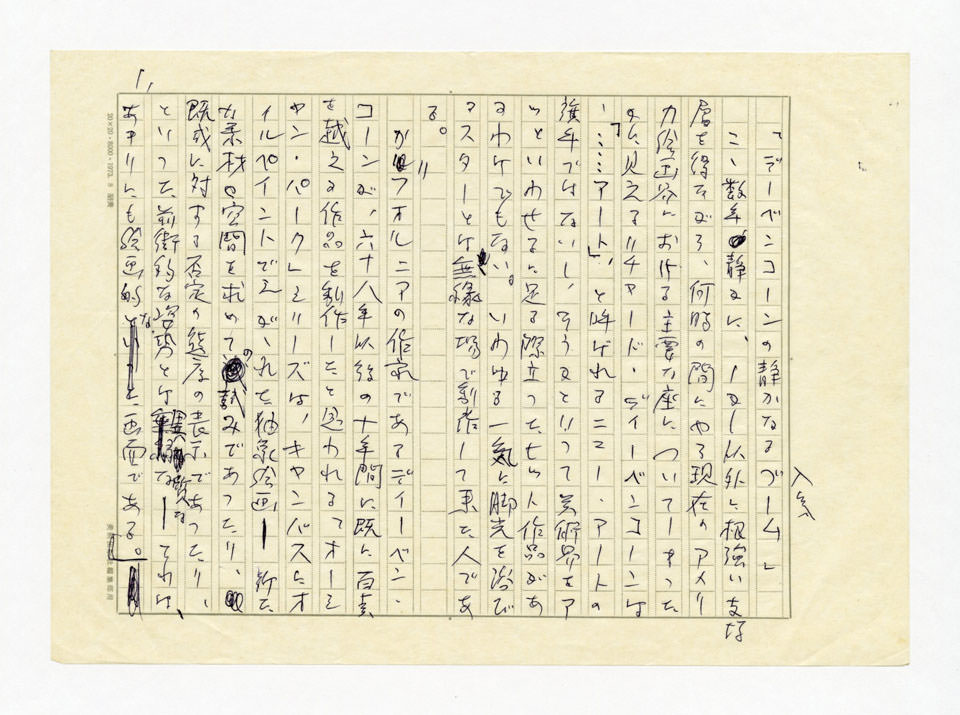 「デーベンコーンの静かなるブーム」
人気
ここ数年静かに、しかし以外に根強い支持
層を得ながら、何時の間にやら現在のアメリ
カ絵画界における主要な座についてしまった
かに見えるリチャード・ディーベンコーンは
「……アート」、と呼ばれるニュー・アートの
旗手ではないし、そうかといって美術界をア
ッといわせるに足る際立ったヒット作品があ
るわけでもない。いわゆる一気に脚光を浴び
スターとは無縁な場で制作して来た人であ
る。
カリフォルニアの作家であるディーベン・
コーンが、六十八年以後の十年間に既に百点
を越える作品を制作したと思われる「オーシ
ャン・パーク」シリーズは、キャンバスにオ
イルペイントでえがかれた抽象絵画―新た
な素材や空間を求めての試みであったり、
既成に対する否定の態度の表示であったり、
といった前衛的な姿勢とは異質な―それは、
あまりにも絵画的な画面である。
20×20・8000・1973.8